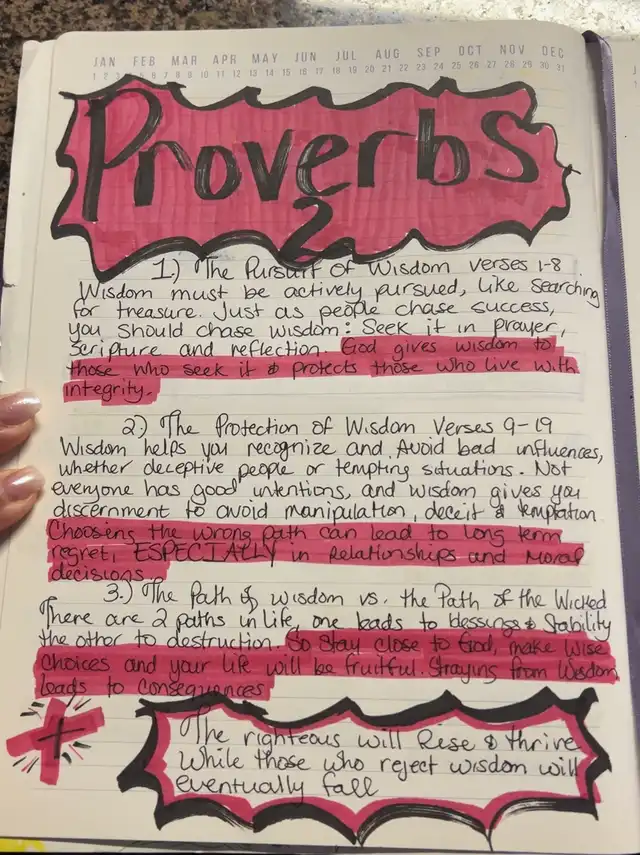 JAN FEB MAR APR MAY JUN JUL AUG SEP OCT NOV DEC
1 2 3 5 6 7 8 9 10 11 12 13 14 15 16 17 18 19 20 21 22 23 24 25 26 27 28 29 30 31
Proverbs
2
1) The Pursuit of Wisdom verses 1-8
Wisdom must be actively pursued, like searching
for treasure. Just as people chase success,
you should chase wisdom: Seek it in prayer,
scripture and reflection. God gives wisdom to
those who seek it & protects those who live with
integrity.
2) The Protection of Wisdom Verses 9-19
Wisdom helps you recognize and Avoid bad influences,
whether deceptive people or tempting situations. Not
everyone has good intentions, and wisdom gives you
discernment to avoid manipulation, deceit & temptation
Choosing the wrong path can lead to long term
regret, ESPECIALLY in Relationships and Moral
decisions.
3.) The Path of wisdom vs. the Path of the Wicked
There are 2 paths in life, one leads to blessings & Stability
the other to destruction. So Stay close to God, make Wise
Choices and your life will be fruitful. Straying from Wisdom
leads to consequences
The righteous will Rise & thrive
While those who reject wisdom will
eventually fall